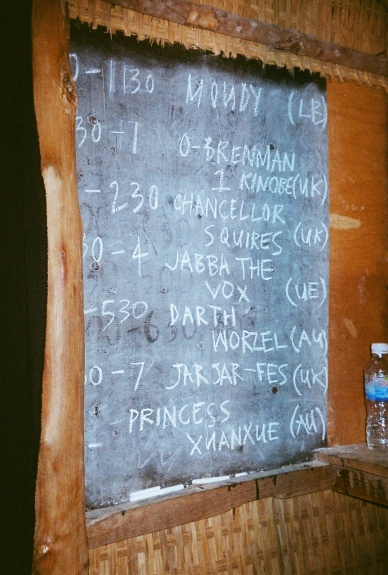 0-1130 MOUDY (LB)
30-1 O-BRENMAN
1 KINOBE (UK)
-230 CHANCELLOR
SQUIRES (UK)
30-4 JABBA THE
VOX (UE)
-530 DARTH
WORZEL (AU)
30-7 JAR JAR-FES (UK)
PRINCESS
- XUANXUE (AU)